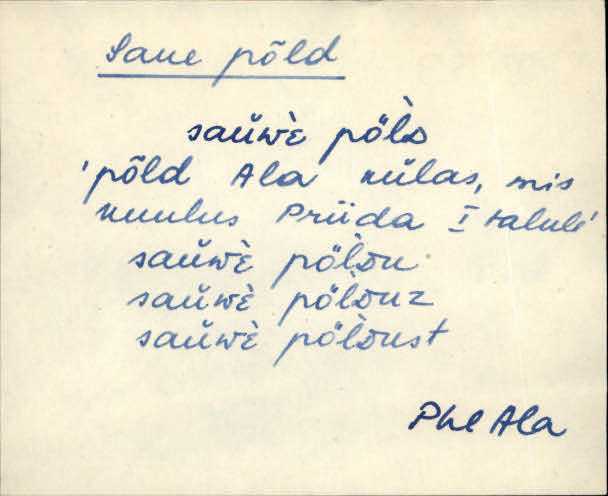 Saue põld
saŭwè pöl̀ᴅ
'põld Ala külas, mis
kuulus Priida I talule'
saŭwè pöl̀ᴅu
saŭwè pöl̀ᴅuz
saŭwè pöl̀ᴅust
Phl Ala